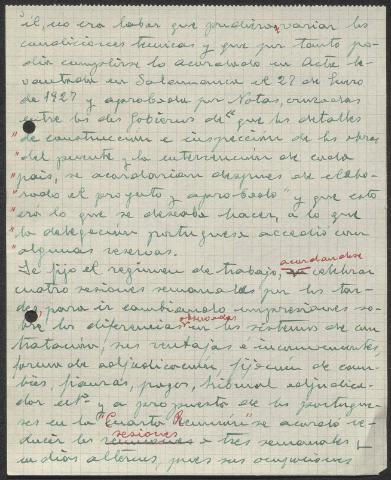 il, no era labor que pudiera variar las
condiciones tecnicas y que por tanto po-
dia cumplirse lo acordado en Acta le-
vantada en Salamanca el 27 de Enero
de 1927 y aprobada por Notas, cruzadas
entre los dos Gobiernos de "que los detalles
" de construccion e inspección de las obras
" del puente y la intervención de cada
" pais, se acordarian despues de elabo-
" rado el proyecto y aprobado" y que esto
era lo que se deseaba hacer, a lo que
la delegación portuguesa accedió con
algunas reservas.
Se fijo el regimen de trabajo, acordandose celebrar
cuatro sesiones semanales por las tar-
des para ir cambiando impresiones so-
bre las diferencias observadas en los sistemas de con-
tratación, sus ventajas e inconvenientes
forma de adjudicación, fijación de cam-
bios, fianzas, pagos, tribunal adjudica-
dor etc. y a propuesta de los portugue-
ses en la "Cuarta Reunión" se acordó re-
ducir las reuniones sesiones a tres semanales
en dias alternos, pues sus ocupaciones